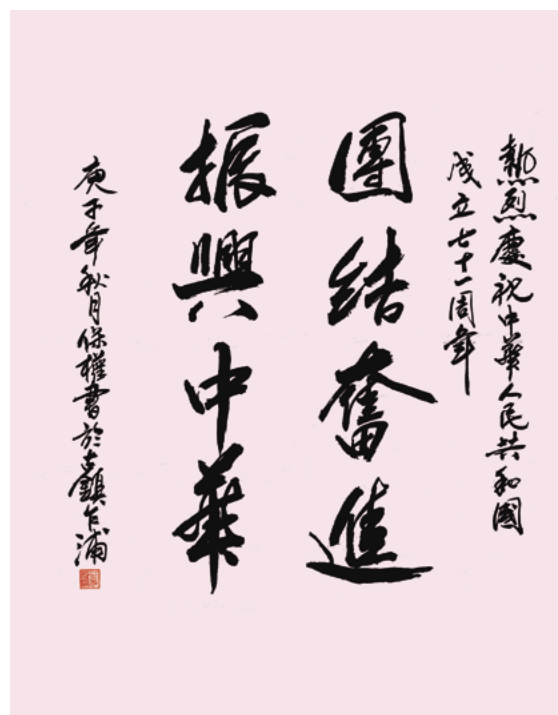 熱烈慶祝中華人民共和國
成立七十一周年
團結奮進
振興中華
庚子年秋月保權書於古鎮乍浦